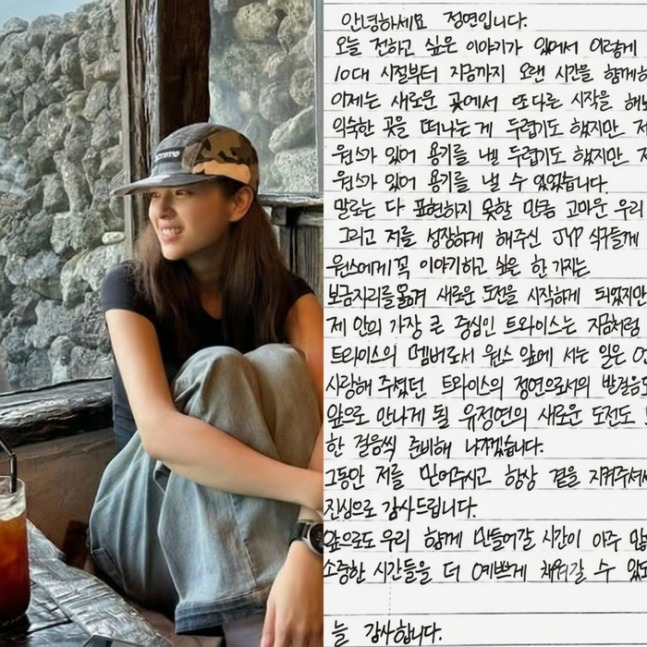 안녕하세요 정연입니다.
오늘 전하고 싶은 이야기가 있어서 이렇게
10대 시절부터 지금까지 오랜 시간을 함께
이제는 새로운 곳에서 또 다른 시작을
익숙한 곳을 떠나는 게 두렵기도 했지만
원스가 있어 용기를 낼 두렵기도 했지만
원스가 있어 용기를 낼 수 있었습니다.
말로는 다 표현하지 못할 만큼 고마운 우리
그리고 저를 성장하게 해주신 JYP 식구들께
원스에게 꼭 이야기하고 싶은 한 가지는
보금자리를 옮겨 새로운 도전을 시작하게 되었지만
제 안의 가장 큰 중심인 트와이스는 지금처럼
트와이스의 멤버로서 원스 앞에 서는 일은
사랑해 주셨던 트와이스의 정연으로서의 발걸음도
앞으로 만나게 될 유정연의 새로운 도전도
한 걸음씩 준비해 나가겠습니다.
그동안 저를 믿어주시고 항상 곁을
진심으로 감사드립니다.
앞으로도 우리 함께 만들어갈 시간이 아주
소중한 시간들을 더 예쁘게 채워갈 수
늘 감사합니다.